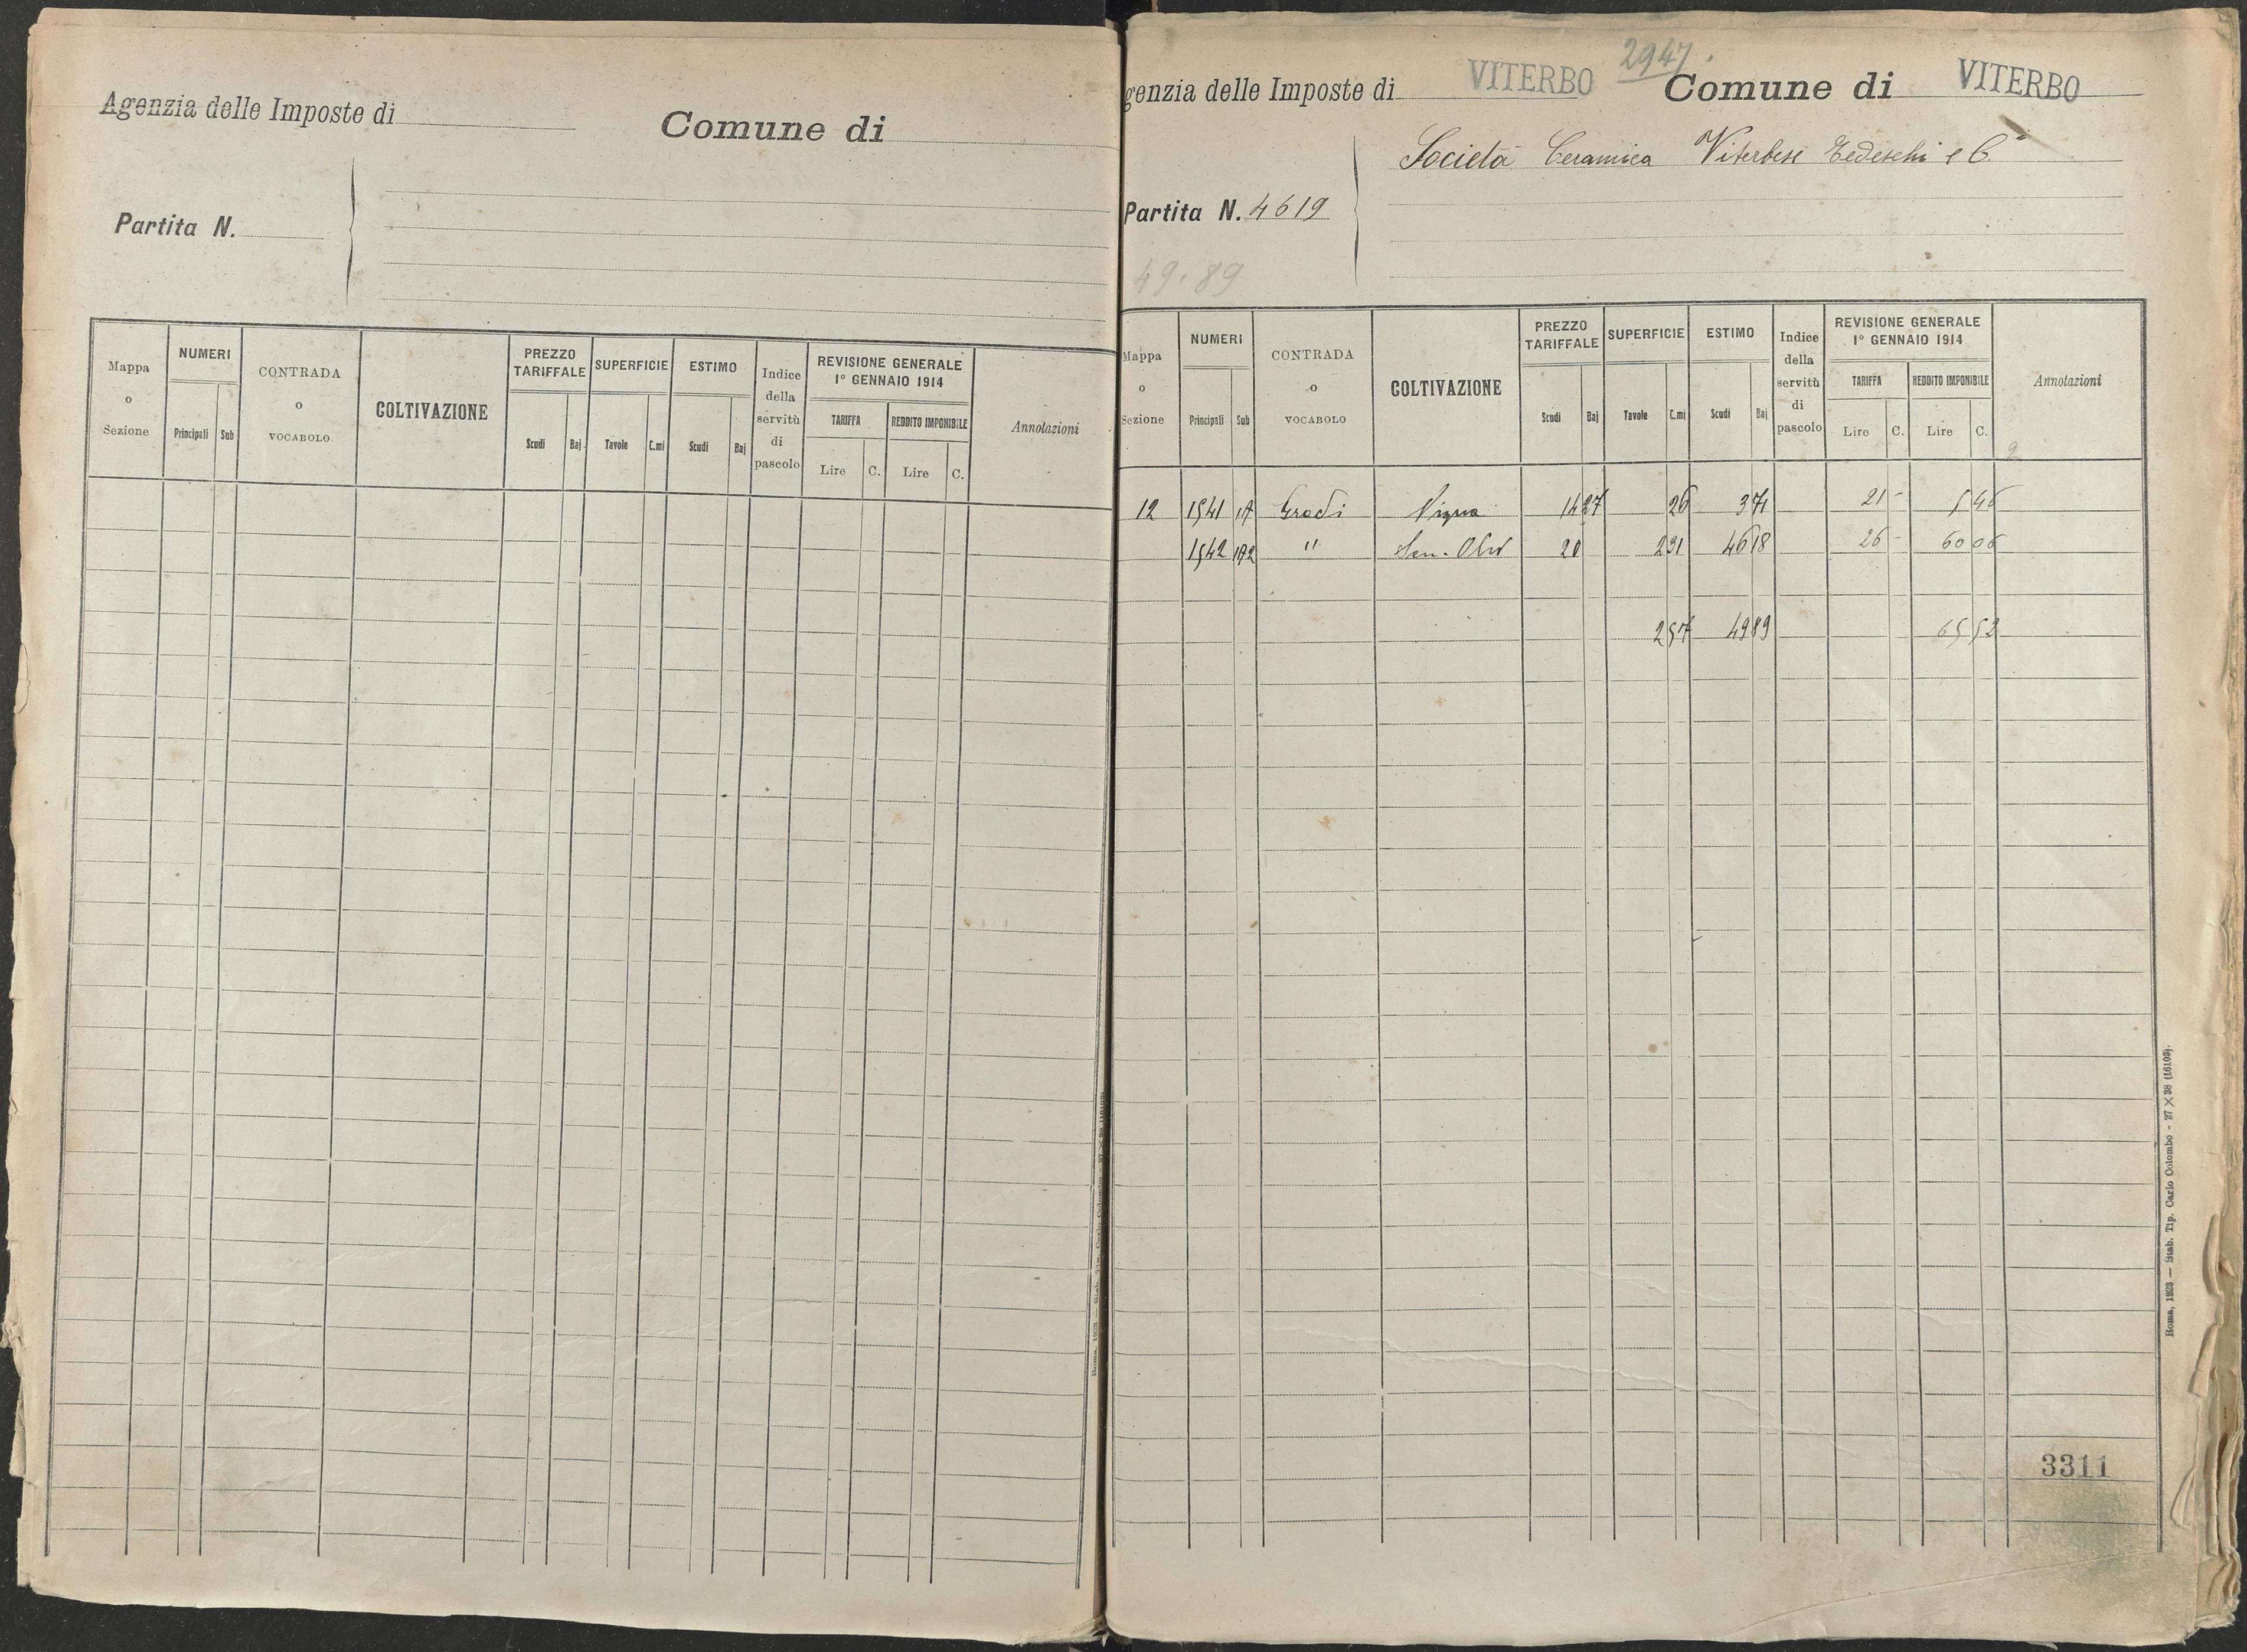 Agenzia delle Imposte di
Comune di
Partita N.
Mappa o Sezione
NUMERI
Principali Sub
CONTRADA o VOCABOLO
COLTIVAZIONE
PREZZO TARIFFALE
Scudi Baj
SUPERFICIE
Tavole C.mi
ESTIMO
Scudi Baj
Indice della servitù di pascolo
REVISIONE GENERALE
1° GENNAIO 1914
TARIFFA
Lire C.
REDDITO IMPONIBILE
Lire C.
Annotazioni
2947.
genzia delle Imposte di VITERBO Comune di VITERBO
Società Ceramica Viterbese Tedeschi e C.
Partita N. 4619
49.89
Mappa o Sezione
NUMERI
Principali Sub
CONTRADA o VOCABOLO
COLTIVAZIONE
PREZZO TARIFFALE
Scudi Baj
SUPERFICIE
Tavole C.mi
ESTIMO
Scudi Baj
Indice della servitù di pascolo
REVISIONE GENERALE
1° GENNAIO 1914
TARIFFA
Lire C.
REDDITO IMPONIBILE
Lire C.
Annotazioni
2
12 1541 Gradi Vigna 14 27 26 3 71 21 - 5 46
1542 " Sem. Oliv 20 2 31 46 18 26 - 60 06
2 57 49 89 65 52
3311
Roma, 1923 — Stab. Tip. Carlo Colombo - 27 X 38 (16103).